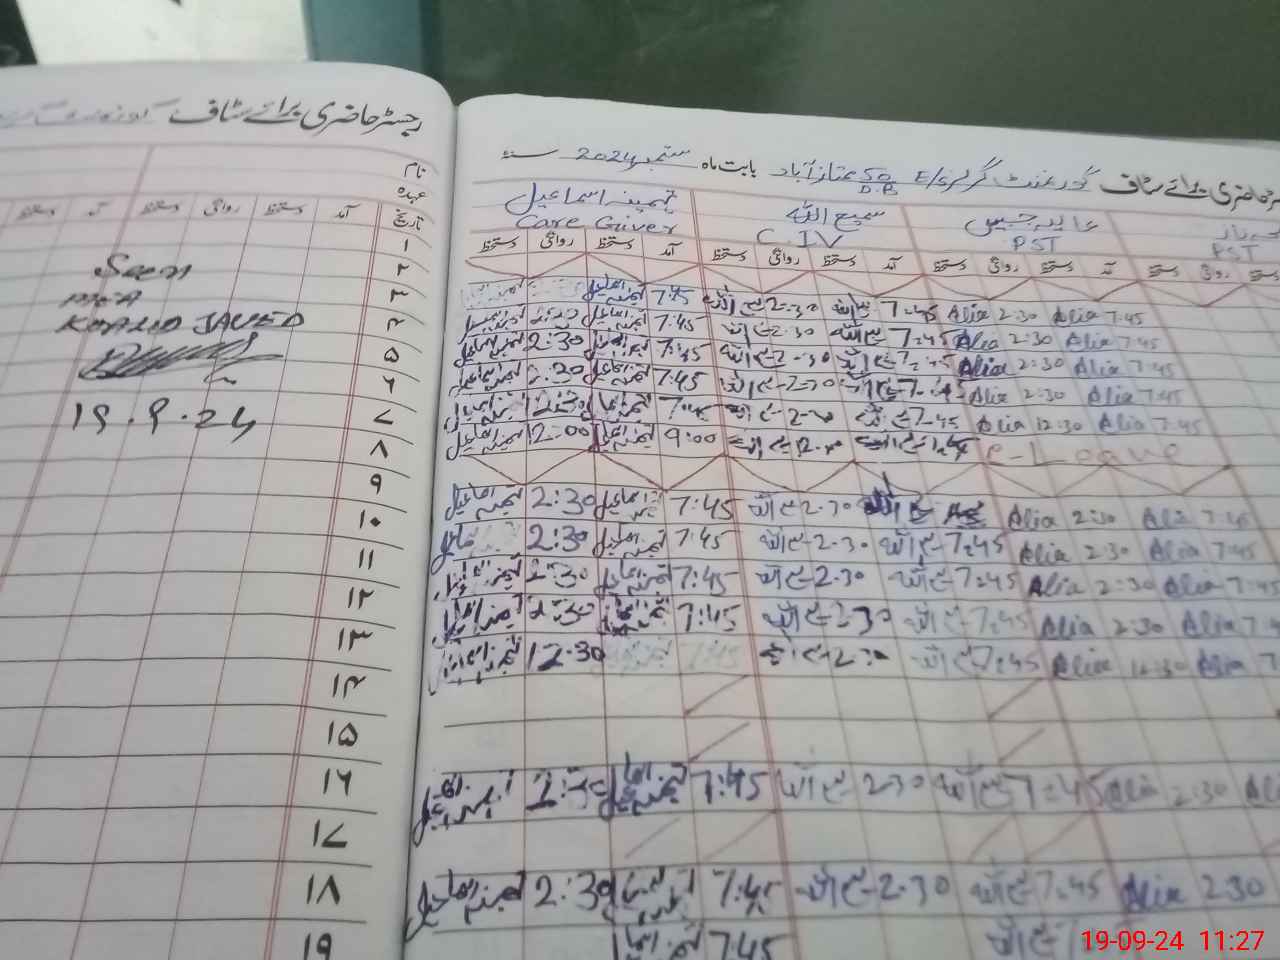 رجسٹر حاضری برائے سٹاف
نام
عہدہ
تاریخ آمد دستخط روانگی دستخط آمد دستخط
۱
۲
۳
۴
۵
۶
۷
۸
۹
۱۰
۱۱
۱۲
۱۳
۱۴
۱۵
۱۶
۱۷
۱۸
۱۹
Seen
MEA
KHALID JAVED
19.9.24
حاضری برائے سٹاف گورنمنٹ گرلز E/S 50 D.B ممتاز آباد بابت ماہ ستمبر 2024 سنہ
عالیہ جبیں سمیع اللہ ثمینہ اسماعیل
PST PST C.IV Care Giver
دستخط روانگی دستخط آمد دستخط روانگی دستخط آمد دستخط روانگی دستخط آمد دستخط روانگی دستخط
7:45 ثمینہ اسماعیل 2:30 سمیع اللہ 7:45 سمیع اللہ Alia 2:30 Alia 7:45
ثمینہ اسماعیل 2:30 ثمینہ اسماعیل 7:45 سمیع اللہ 2.30 سمیع اللہ 7:45 Alia 2:30 Alia 7:45
ثمینہ اسماعیل 2:30 ثمینہ اسماعیل 7:45 سمیع اللہ 2.30 سمیع اللہ 7:45 Alia 2:30 Alia 7:45
ثمینہ اسماعیل 2:30 ثمینہ اسماعیل 7:45 سمیع اللہ 2.30 سمیع اللہ Alia 2:30 Alia 7:45
ثمینہ اسماعیل 12:30 ثمینہ اسماعیل 7:45 سمیع اللہ سمیع اللہ 7:45 Alia 12:30 Alia 7:45
ثمینہ اسماعیل 12:00 ثمینہ اسماعیل 9:00 سمیع اللہ سمیع اللہ c-Leave
ثمینہ اسماعیل 2:30 ثمینہ اسماعیل 7:45 سمیع اللہ 2.30 Alia 2:30 Alia 7:45
2:30 ثمینہ اسماعیل 7:45 سمیع اللہ 2.30 سمیع اللہ 7:45 Alia 2:30 Alia 7:45
2:30 ثمینہ اسماعیل 7:45 سمیع اللہ 2.30 سمیع اللہ 7:45 Alia 2:30 Alia 7:45
ثمینہ اسماعیل 2:30 ثمینہ اسماعیل 7:45 سمیع اللہ 2.30 سمیع اللہ 7:45 Alia 2:30 Alia
ثمینہ اسماعیل 12:30 7:45 سمیع اللہ سمیع اللہ 7:45 Alia 12:30 Alia
ثمینہ اسماعیل 2:30 ثمینہ اسماعیل 7:45 سمیع اللہ 2.30 سمیع اللہ 7:45 Alia 2:30
ثمینہ اسماعیل 2:30 ثمینہ اسماعیل 7:45 سمیع اللہ 2.30 سمیع اللہ 7:45 Alia 2:30
ثمینہ اسماعیل 7:45 سمیع اللہ
19-09-24 11:27